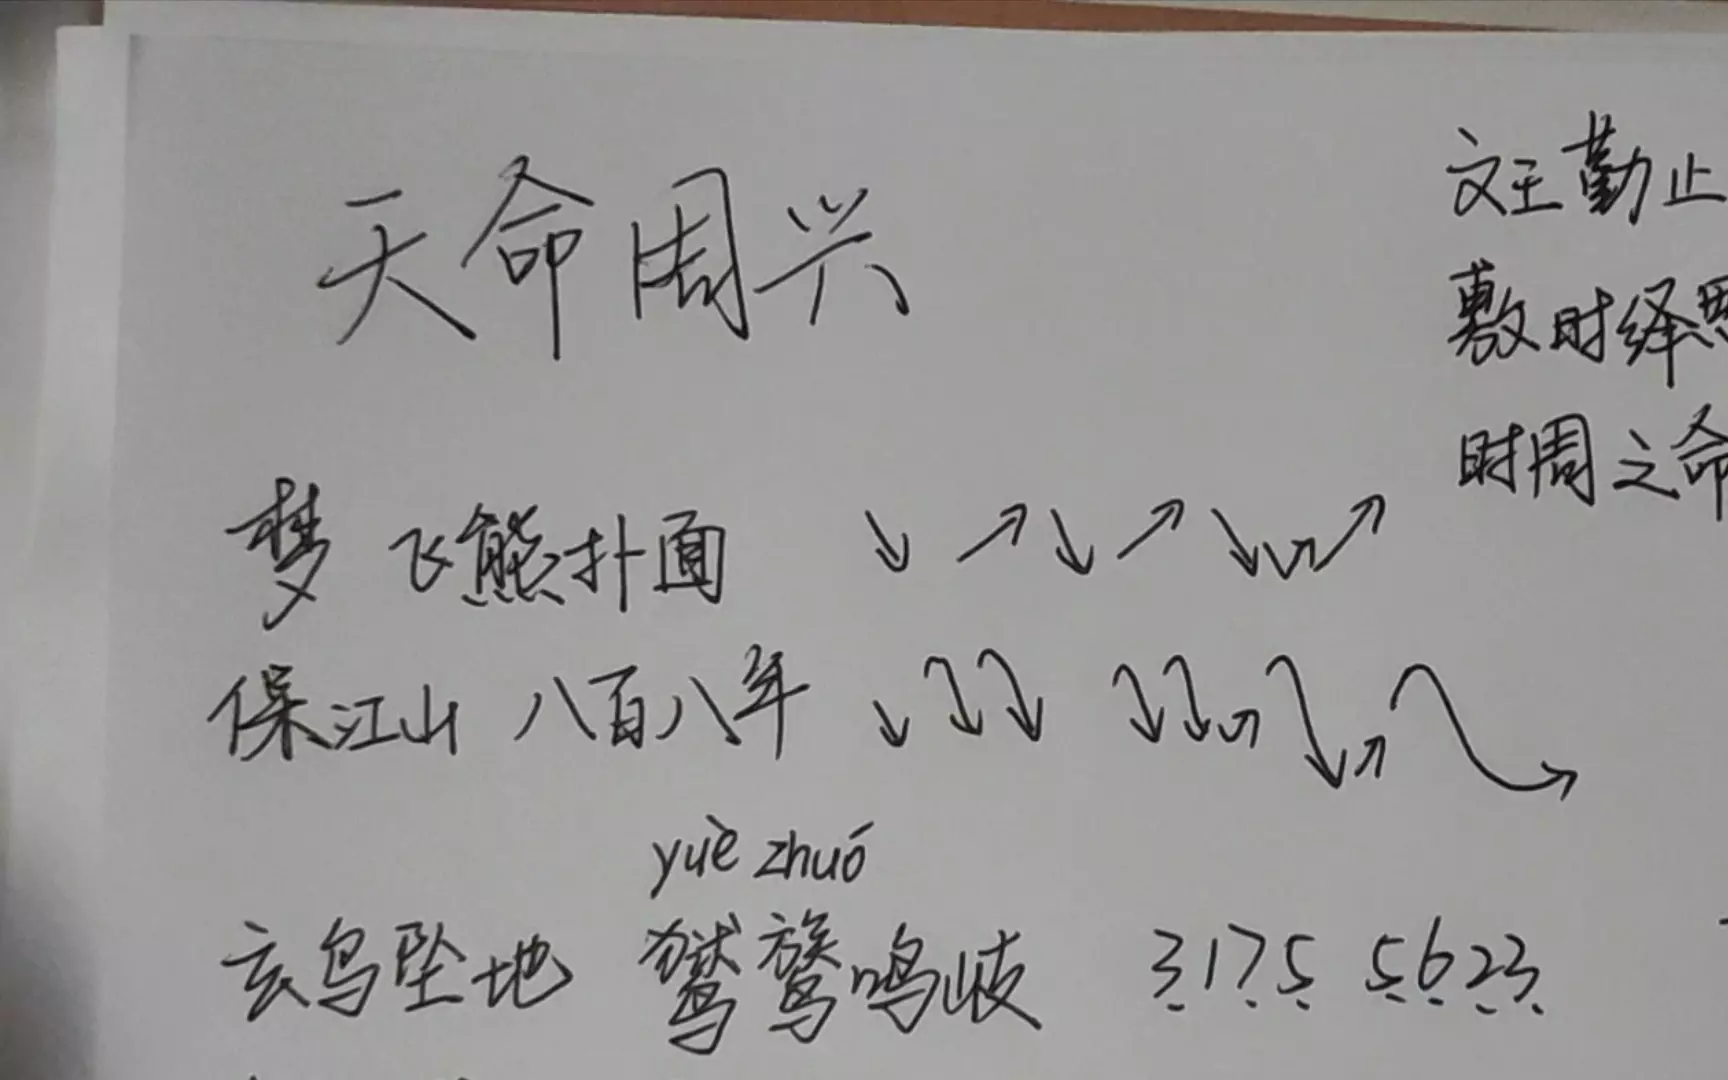 天命周兴
文王勤止
敷时绎思
时周之命
梦飞熊扑面 ↘ ↗ ↘ ↗ ↘ ↗ ↗
保江山 八百八年
yuè zhuó
玄鸟坠地 鸑鷟鸣岐 3175 5623